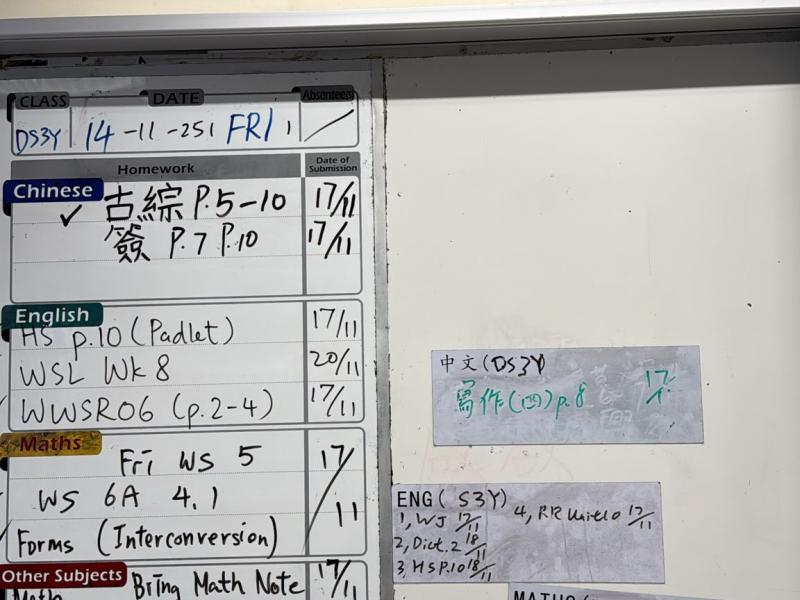 CLASS DATE Absentees
DS3Y 14-11-25 FRI
Homework Date of Submission
Chinese
✓ 古綜 P.5-10 17/11
簽 P.7 P.10 17/11
English
HS p.10 (Padlet) 17/11
WSL Wk 8 20/11
WWSR06 (p.2-4) 17/11
Maths
Fri WS 5 17/11
WS 6A 4.1
Forms (Interconversion)
Other Subjects
Bring Math Note 17/11
Math
中文(DS3Y
寫作(四)p.8 17/
ENG( S3Y)
1, WJ 17/11 4, RR 17/11
2, Dict.2 18/11
3, HS P.10 18/11